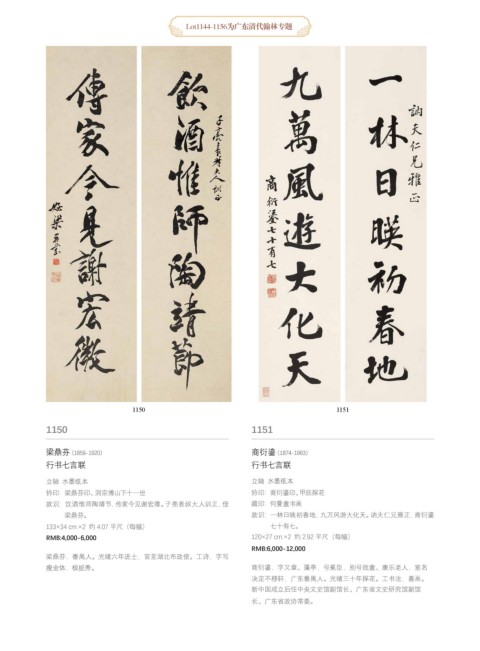 Lot1144-1156为广东清代翰林专题
飲酒惟師陶靖節
子亮表叔大人訓正
傳家今見謝宏微
姪梁鼎芬
一林日暎初春地
訥夫仁兄雅正
九萬風遊大化天
商衍鎏七十有七
1150
1151
1150
梁鼎芬 (1859-1920)
行书七言联
立轴 水墨纸本
钤印：梁鼎芬印、洞宗博山下十一世
款识：饮酒惟师陶靖节，传家今见谢宏微。子亮表叔大人训正，侄
梁鼎芬。
133×34 cm ×2 约 4.07 平尺（每幅）
RMB:4,000-6,000
梁鼎芬，番禺人。光绪六年进士，官至湖北布政使。工诗，字写
瘦金体，极挺秀。
1151
商衍鎏 (1874-1963)
行书七言联
立轴 水墨纸本
钤印：商衍鎏印、甲辰探花
藏印：何曼盦书画
款识：一林日映初春地，九万风游大化天。讷夫仁兄雅正，商衍鎏
七十有七。
120×27 cm ×2 约 2.92 平尺（每幅）
RMB:6,000-12,000
商衍鎏，字又章、藻亭，号冕臣，别号康乐老人，室名
决定不移轩，广东番禺人。光绪三十年探花。工书法、善画。
新中国成立后任中央文史馆副馆长、广东省文史研究馆副馆
长、广东省政协常委。